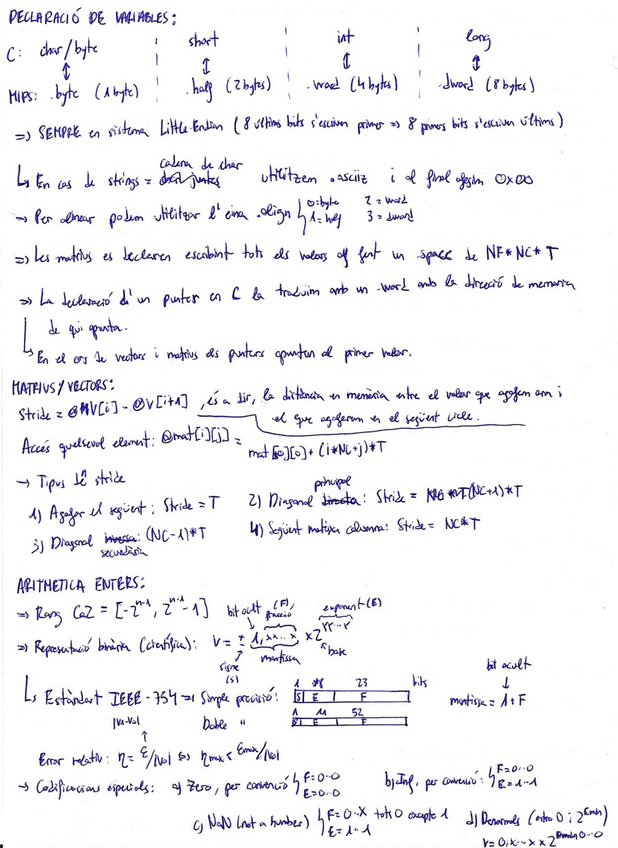 DECLARACIÓ DE VARIABLES:
C: char/byte short int long
MIPS: .byte (1 byte) .half (2 bytes) .word (4 bytes) .dword (8 bytes)
=> SEMPRE en sistema Little-Endian (8 últims bits s'escriuen primer => 8 primers bits s'escriuen últims)
↳ En cas de strings = cadena de char utilitzem .asciiz i al final afegim 0x00
→ Per alinear podem utilitzar l'eina .align { 0=byte 2=word
1=half 3=dword
=> Les matrius es declaren escribint tots els valors of fent un space de NF*NC*T
=> La declaració d'un punter en C la traduim amb un .word amb la direcció de memoria
de qui apunta.
↳ En el cas de vectors i matrius els punters apunten al primer valor.
MATRIUS/VECTORS:
Stride = @V[i] - @V[i+1], és a dir, la distància en memòria entre el valor que agafem ara i
el que agafarem en el següent cicle.
Accés qualsevol element: @mat[i][j] =
mat[0][0] + (i*NC+j)*T
→ Tipus de stride
1) Agafar el següent: Stride = T 2) Diagonal principal: Stride = (NC+1)*T
3) Diagonal secundària: (NC-1)*T 4) Següent mateixa columna: Stride = NC*T
ARITMETICA ENTERS:
=> Rang Ca2 = [-2^n-1, 2^n-1 - 1]
bit ocult (F), fracció exponent (E)
=> Representació binària (científica): V = ± 1,xx...x x2^yy...y
signe (s) mantissa base
↳ Estàndart IEEE-754 => Simple precisió: 1 8 23 bits
S E F
Doble " 1 11 52
S E F
bit ocult
↓
mantissa = 1+F
|V₀-V₀|
Error relatiu: η = ε/|V₀| => ηmax < εmax/|V₀|
→ Codificacions especials: a) Zero, per convenció { F=0..0
E=0..0
b) Inf, per convenció: { F=0..0
E=1..1
c) NaN (not a number) { F=0..X tots 0 excepte 1
E=1..1
d) Denormals (entre 0 i 2^Emin)
V=0,x...x x 2^